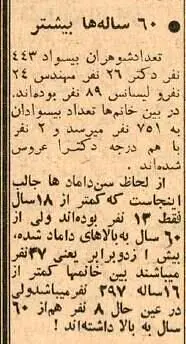 ● ۶۰ ساله‌ها بیشتر
تعدادشوهران بیسواد ۴۴۳
نفر دکتر ۲۶ نفر مهندس ۲۴
نفرو لیسانس ۸۹ نفر بوده‌اند.
در بین خانم‌ها تعداد بیسوادان
به ۷۵۱ نفر میرسد و ۲ نفر
با هم درجه دکترا عروس
شده‌اند.
از لحاظ سن‌داماد ها جالب
اینجاست که‌کمتر از ۱۸سال
فقط ۱۳ نفر بوده‌اند ولی از
۶۰ سال به‌بالاهای داماد شده،
بیش از دوبرابر یعنی ۳۷نفر
میباشند بین خانمها کمتر از
۱۶ساله ۲۹۷ نفرمیباشدولی
در عین حال ۸ نفر هم‌از ۶۰
سال به بالا داشته‌اند !